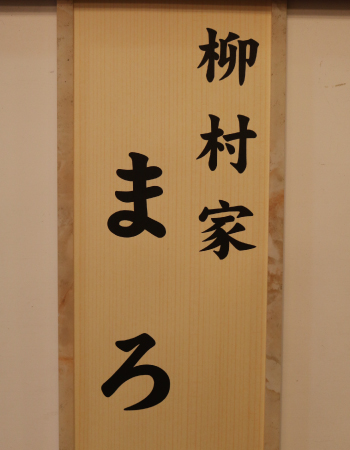 柳村家
まろ